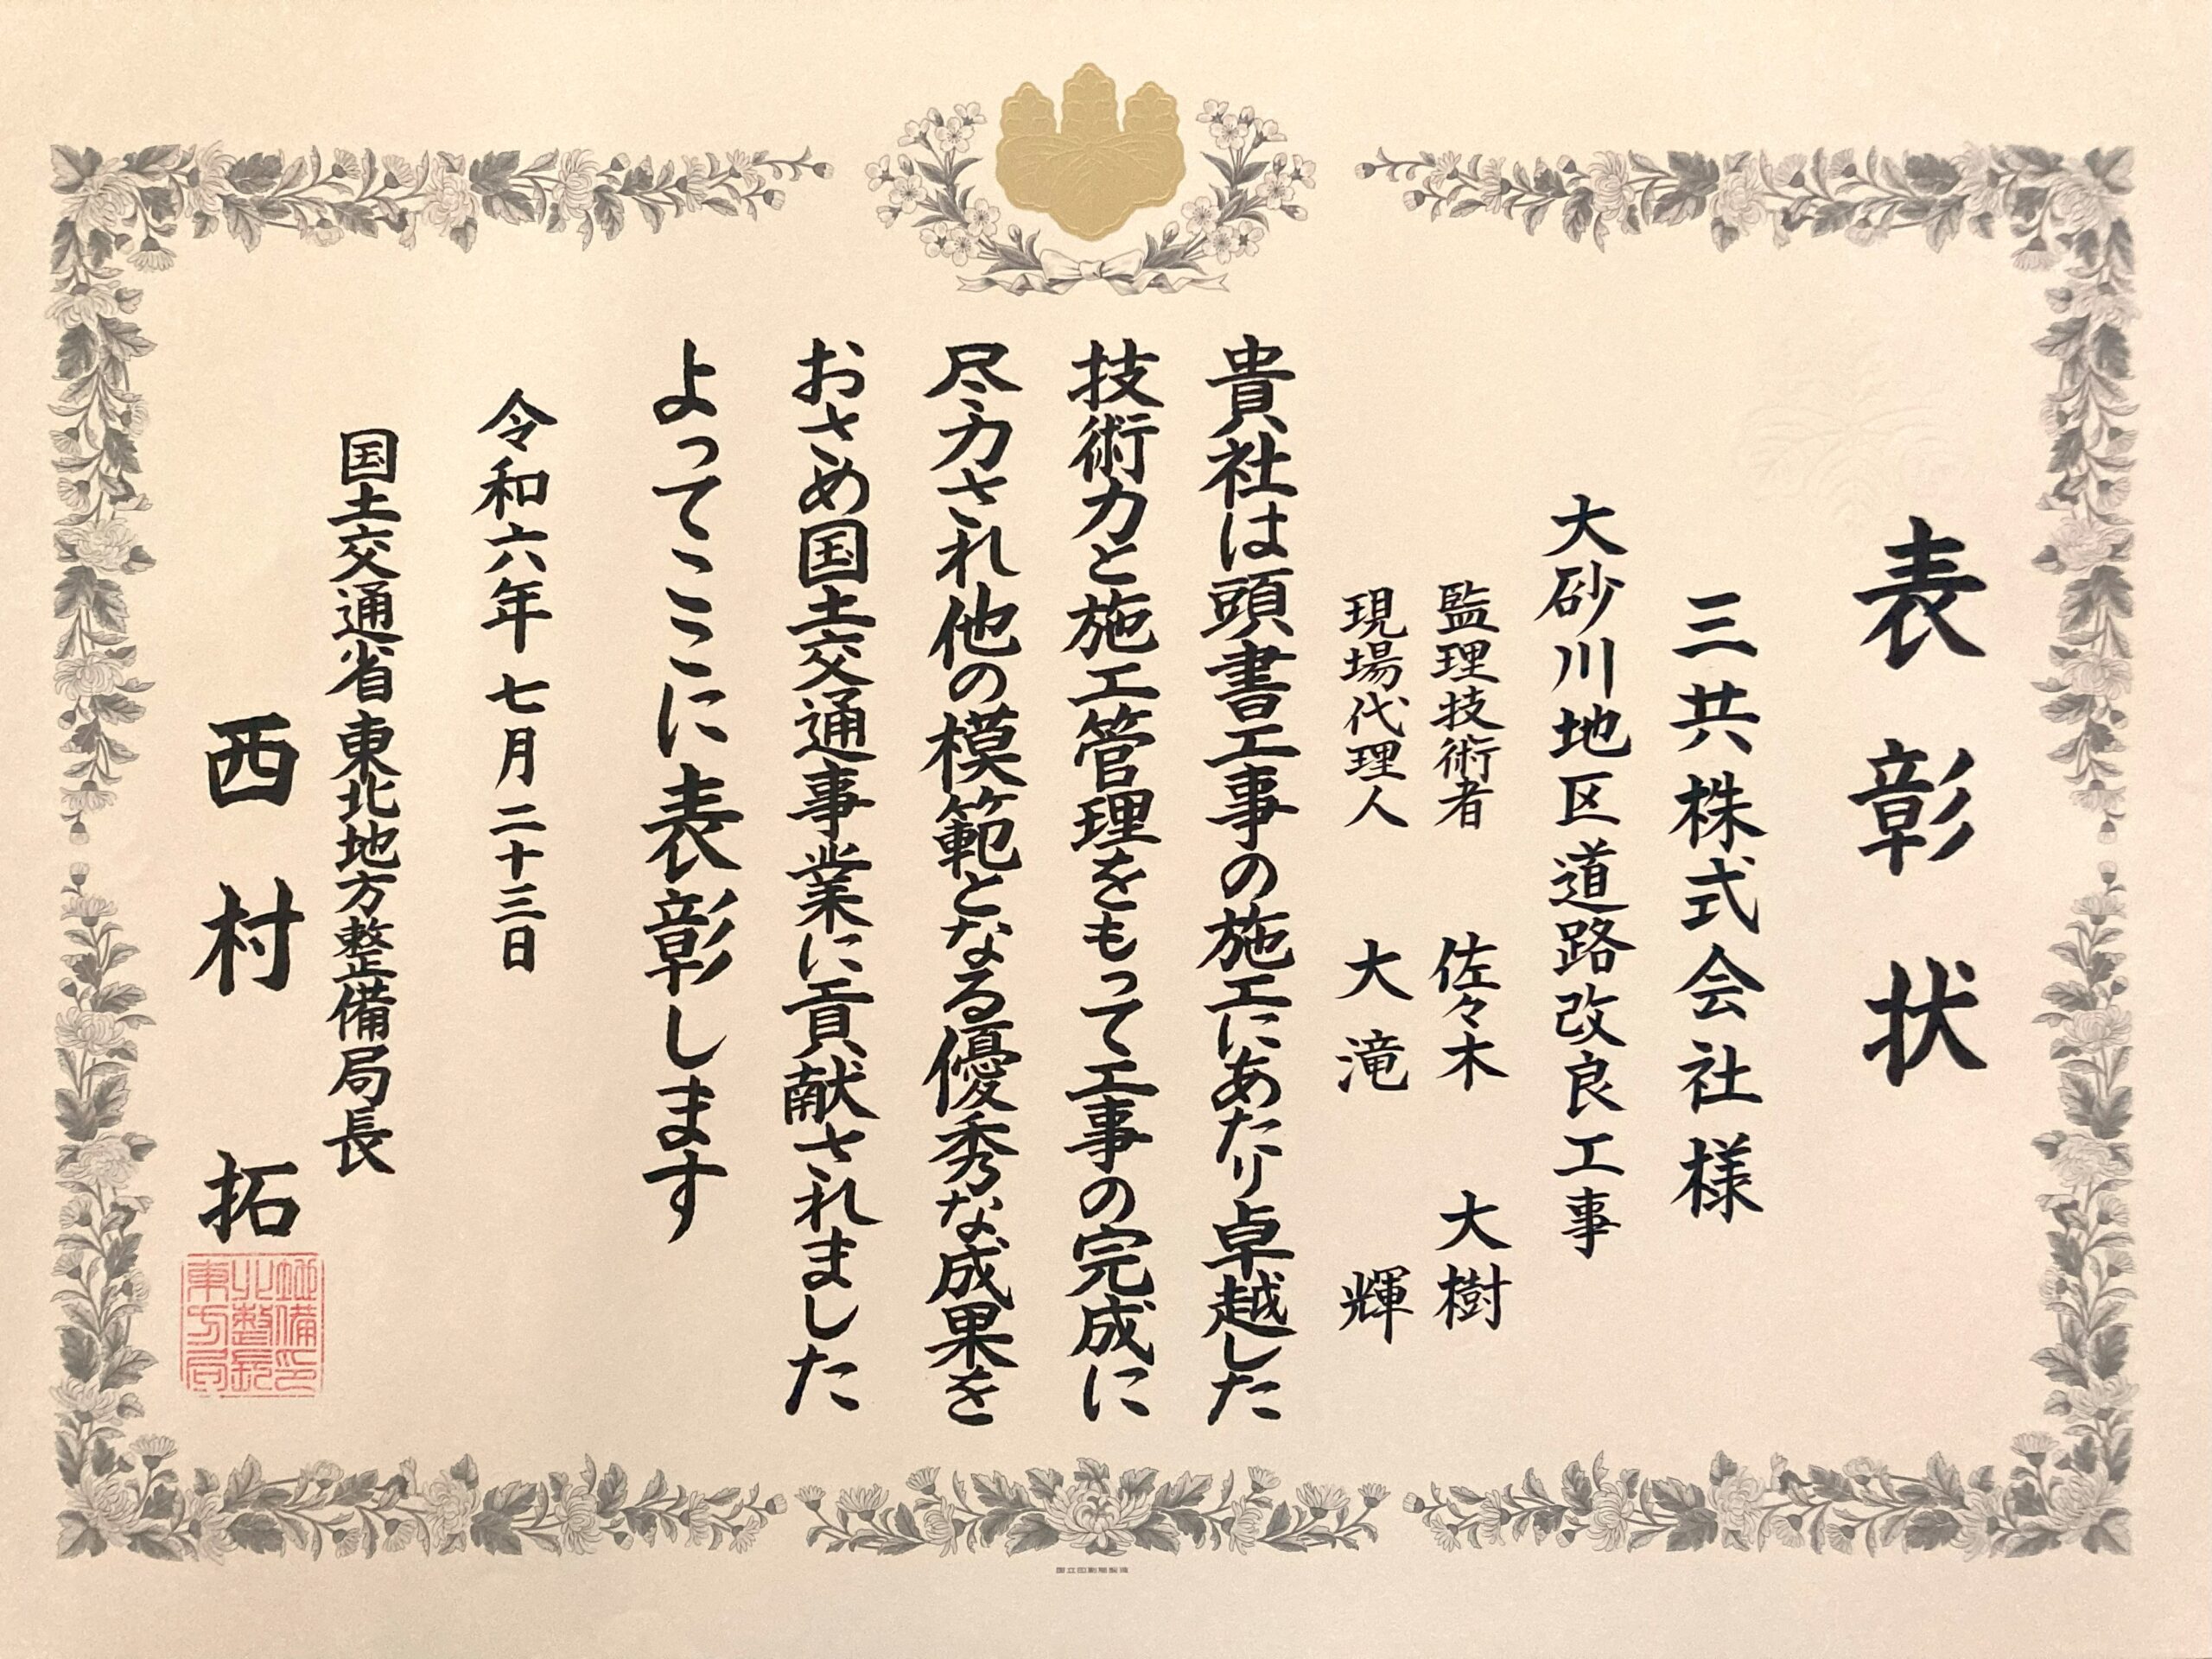 表彰状
三共株式会社様
大砂川地区道路改良工事
監理技術者 佐々木 大樹
現場代理人 大滝 輝
貴社は頭書工事の施工にあたり卓越した
技術力と施工管理をもって工事の完成に
尽力され他の模範となる優秀な成果を
おさめ国土交通事業に貢献されました
よってここに表彰します
令和六年七月二十三日
国土交通省東北地方整備局長
西村 拓
国立印刷局製造